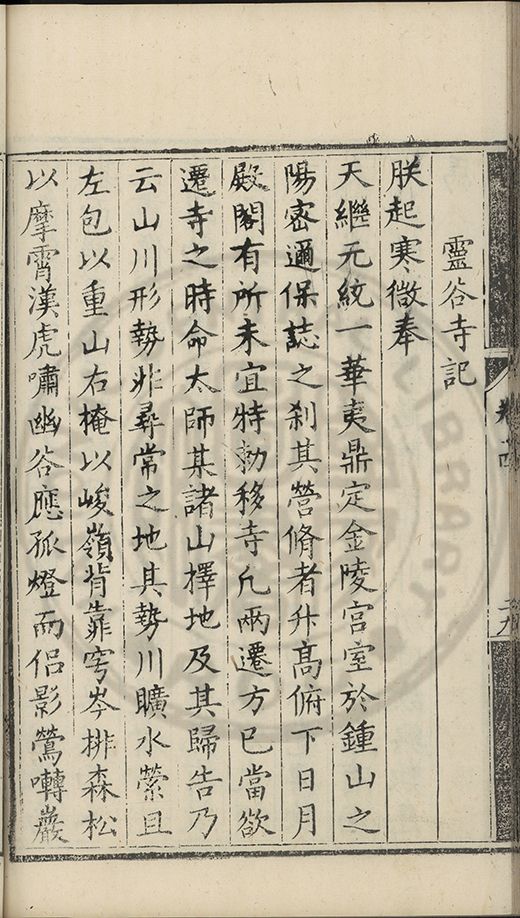 靈谷寺記
朕起寒微奉
天繼元統一華夷鼎定金陵宫室於鍾山之
陽密邇保誌之刹其營脩者升髙俯下日月
殿閣有所未宜特勑移寺凢兩遷方已當欲
遷寺之時命太師某諸山擇地及其歸告乃
云山川形勢非尋常之地其勢川曠水縈且
左包以重山右掩以峻嶺背靠穹岑排森松
以摩霄漢虎嘯幽谷應孤燈而侣影鶯囀巖